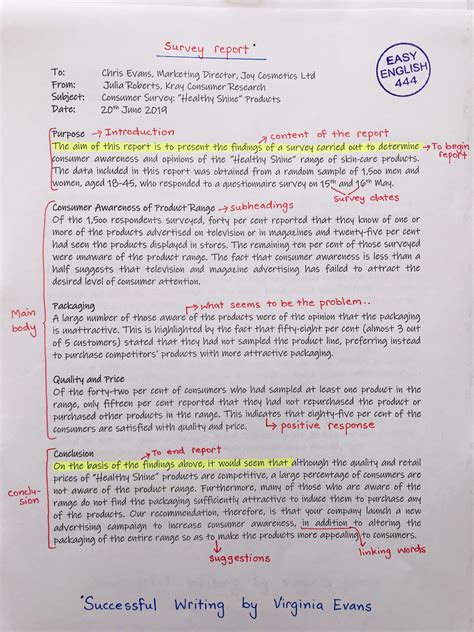 Survey report *
EASY
ENGLISH
444
To: Chris Evans, Marketing Director, Joy Cosmetics Ltd
From: Julia Roberts, Kray Consumer Research
Subject: Consumer Survey: "Healthy Shine" Products
Date: 20th June 2019
Purpose → Introduction
content of the report
The aim of this report is to present the findings of a survey carried out to determine
To begin
report
consumer awareness and opinions of the "Healthy Shine" range of skin-care products.
The data included in this report was obtained from a random sample of 1,500 men and
women, aged 18-45, who responded to a questionnaire survey on 15th and 16th May.
survey dates
Consumer Awareness of Product Range → subheadings
Of the 1,500 respondents surveyed, forty per cent reported that they know of one or
more of the products advertised on television or in magazines and twenty-five per cent
had seen the products displayed in stores. The remaining ten per cent of those surveyed
were unaware of the product range. The fact that consumer awareness is less than a
half suggests that television and magazine advertising has failed to attract the
desired level of consumer attention.
Main
body
Packaging
what seems to be the problem..
A large number of those aware of the products were of the opinion that the packaging
is unattractive. This is highlighted by the fact that fifty-eight per cent (almost 3 out
of 5 customers) stated that they had not sampled the product line, preferring instead
to purchase competitors' products with more attractive packaging.
Quality and Price
Of the forty-two per cent of consumers who had sampled at least one product in the
range, only fifteen per cent reported that they had not repurchased the product or
purchased other products in the range. This indicates that eighty-five per cent of the
consumers are satisfied with quality and price.
positive response
Conclusion
To end report
On the basis of the findings above, it would seem that although the quality and retail
prices of "Healthy Shine" products are competitive, a large percentage of consumers are
not aware of the product range. Furthermore, many of those who are aware of the
range do not find the packaging sufficiently attractive to induce them to purchase any
of the products. Our recommendation, therefore, is that your company launch a new
advertising campaign to increase consumer awareness, in addition to altering the
packaging of the entire range so as to make the products more appealing to consumers.
conclu-
sion
suggestions
linking words
*Successful Writing by Virginia Evans